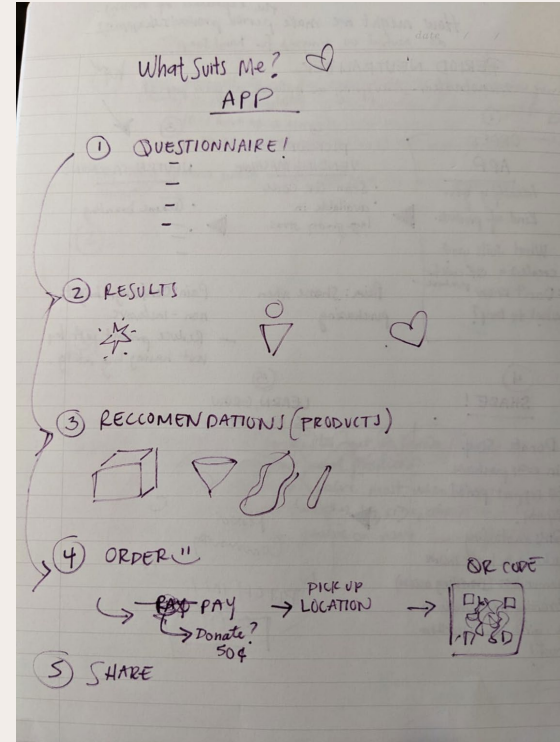 What Suits Me?
APP
① QUESTIONNAIRE!
② RESULTS
③ RECCOMENDATIONS (PRODUCTS)
④ ORDER
PAY → PICK UP LOCATION → QR CODE
Donate?
50¢
⑤ SHARE